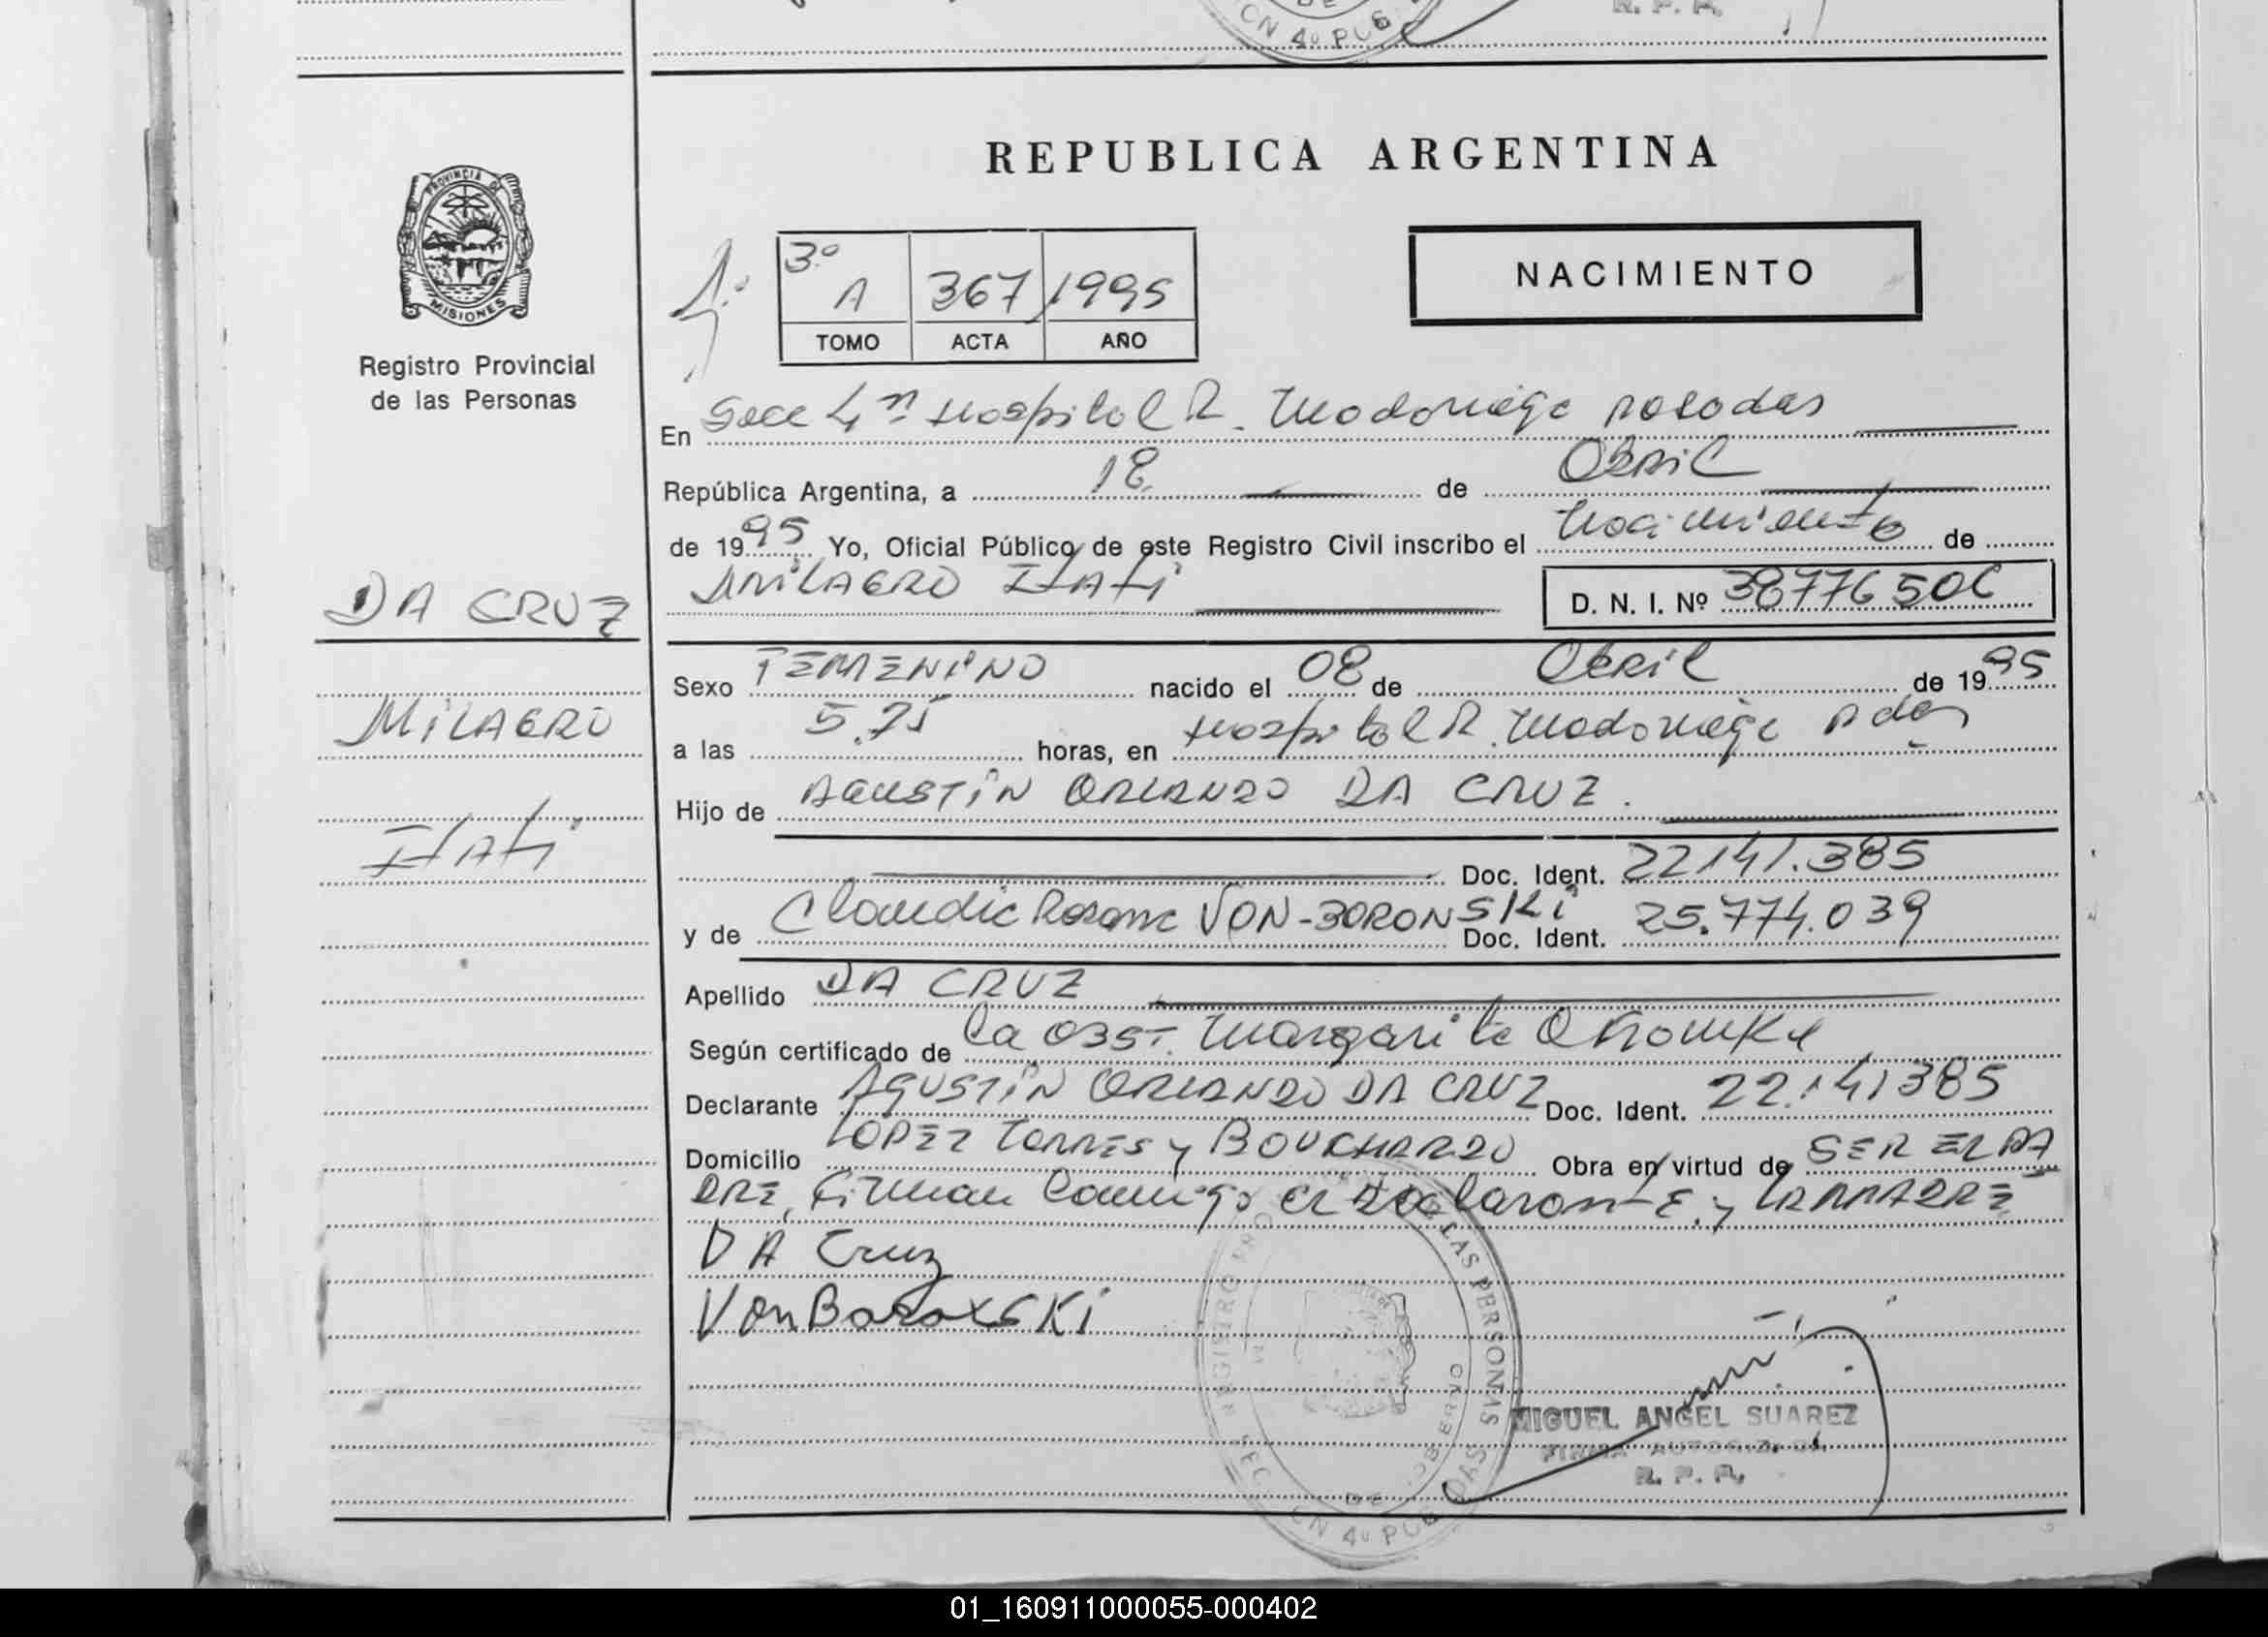 CN 4º PUB
R. P. P.
PROVINCIA DE
MISIONES
Registro Provincial
de las Personas
REPUBLICA ARGENTINA
NACIMIENTO
3º
A 367 1995
TOMO ACTA AÑO
En Secc 4ª Hospital R. Madariaga Posadas
República Argentina, a 18 de Abril
de 1995 Yo, Oficial Público de este Registro Civil inscribo el Nacimiento de
MILAGRO ITATI
D. N. I. Nº 38776506
DA CRUZ
MILAGRO
ITATI
Sexo FEMENINO nacido el 08 de Abril de 1995
a las 5,25 horas, en Hospital R. Madariaga Pdas
Hijo de AGUSTIN ORLANDO DA CRUZ.
Doc. Ident. 22.141.385
y de Claudia Rosana VON-BORONSKI Doc. Ident. 25.774.039
Apellido DA CRUZ
Según certificado de La OBST. Margarita
Declarante AGUSTIN ORLANDO DA CRUZ Doc. Ident. 22.141385
Domicilio LOPEZ TORRES y BOUCHARDO Obra en virtud de SER EL PA
DRE, Firman Conmigo el Declarante y LA MADRE
DA Cruz
Von
MIGUEL ANGEL SUAREZ
FIRMA AUTORIZADA
R. P. P.
01_160911000055-000402